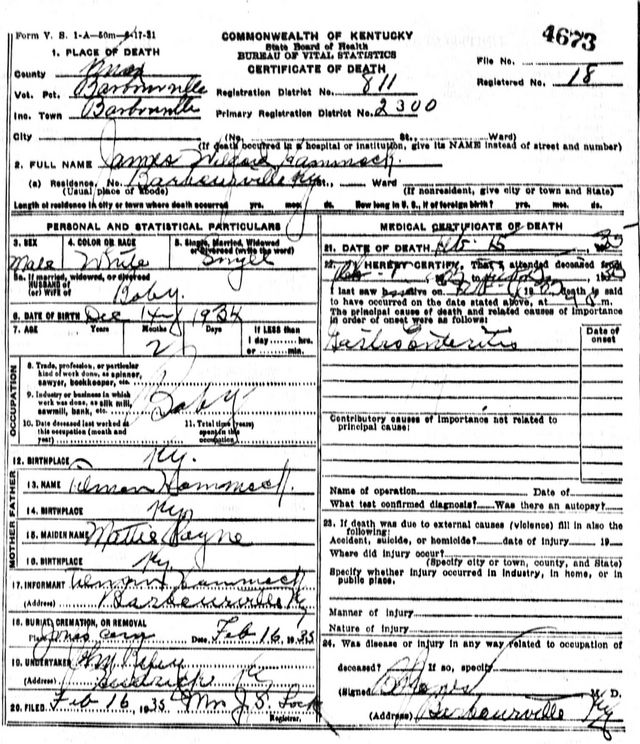 Form V. S. 1-A—50m—8-17-31
4673
COMMONWEALTH OF KENTUCKY
State Board of Health
BUREAU OF VITAL STATISTICS
CERTIFICATE OF DEATH
1. PLACE OF DEATH
County Knox
Vot. Pct. Barbourville
Inc. Town Barbourville
City
Registration District No. 811
Primary Registration District No. 2300
File No.
Registered No. 18
(No. St., Ward)
(If death occurred in a hospital or institution, give its NAME instead of street and number)
2. FULL NAME James Hammock.
(a) Residence, No. Barbourville Ky St., Ward
(Usual place of abode) (If nonresident, give city or town and State)
Length of residence in city or town where death occurred yrs. mos. ds. How long in U. S., if of foreign birth? yrs. mos. ds.
PERSONAL AND STATISTICAL PARTICULARS
3. SEX 4. COLOR OR RACE 5. Single, Married, Widowed or Divorced (write the word)
Male White Single
5a. If married, widowed, or divorced
HUSBAND of
(or) WIFE of Baby.
6. DATE OF BIRTH Dec 1934
7. AGE Years Months Days If LESS than
1 day hrs.
or min.
2
OCCUPATION
8. Trade, profession, or particular
kind of work done, as spinner,
sawyer, bookkeeper, etc.
9. Industry or business in which
work was done, as silk mill,
sawmill, bank, etc. Baby
10. Date deceased last worked at
this occupation (month and
year)
11. Total time (years)
spent in this
occupation
12. BIRTHPLACE Ky.
FATHER
13. NAME Hammock.
14. BIRTHPLACE Ky
MOTHER
15. MAIDEN NAME Mattie Payne
16. BIRTHPLACE Ky
17. INFORMANT Hammock
(Address) Barbourville Ky
18. BURIAL, CREMATION, OR REMOVAL
Place Jones cem Date Feb 16, 1935
19. UNDERTAKER
(Address) Ky
20. FILED Feb 16, 1935 Mrs J. S. Lock
Registrar.
MEDICAL CERTIFICATE OF DEATH
21. DATE OF DEATH Feb. 15 1935
22. I HEREBY CERTIFY, That I attended deceased from
I last saw alive on 19 death is said
to have occurred on the date stated above, at m.
The principal cause of death and related causes of importance
in order of onset were as follows:
Date of
onset
Gastroenteritis
Contributory causes of importance not related to
principal cause:
Name of operation Date of
What test confirmed diagnosis? Was there an autopsy?
23. If death was due to external causes (violence) fill in also the
following:
Accident, suicide, or homicide? date of injury 19
Where did injury occur?
(Specify city or town, county, and State)
Specify whether injury occurred in industry, in home, or in
public place.
Manner of injury
Nature of injury
24. Was disease or injury in any way related to occupation of
deceased? If so, specify
(Signed) M. D.
(Address) Barbourville Ky